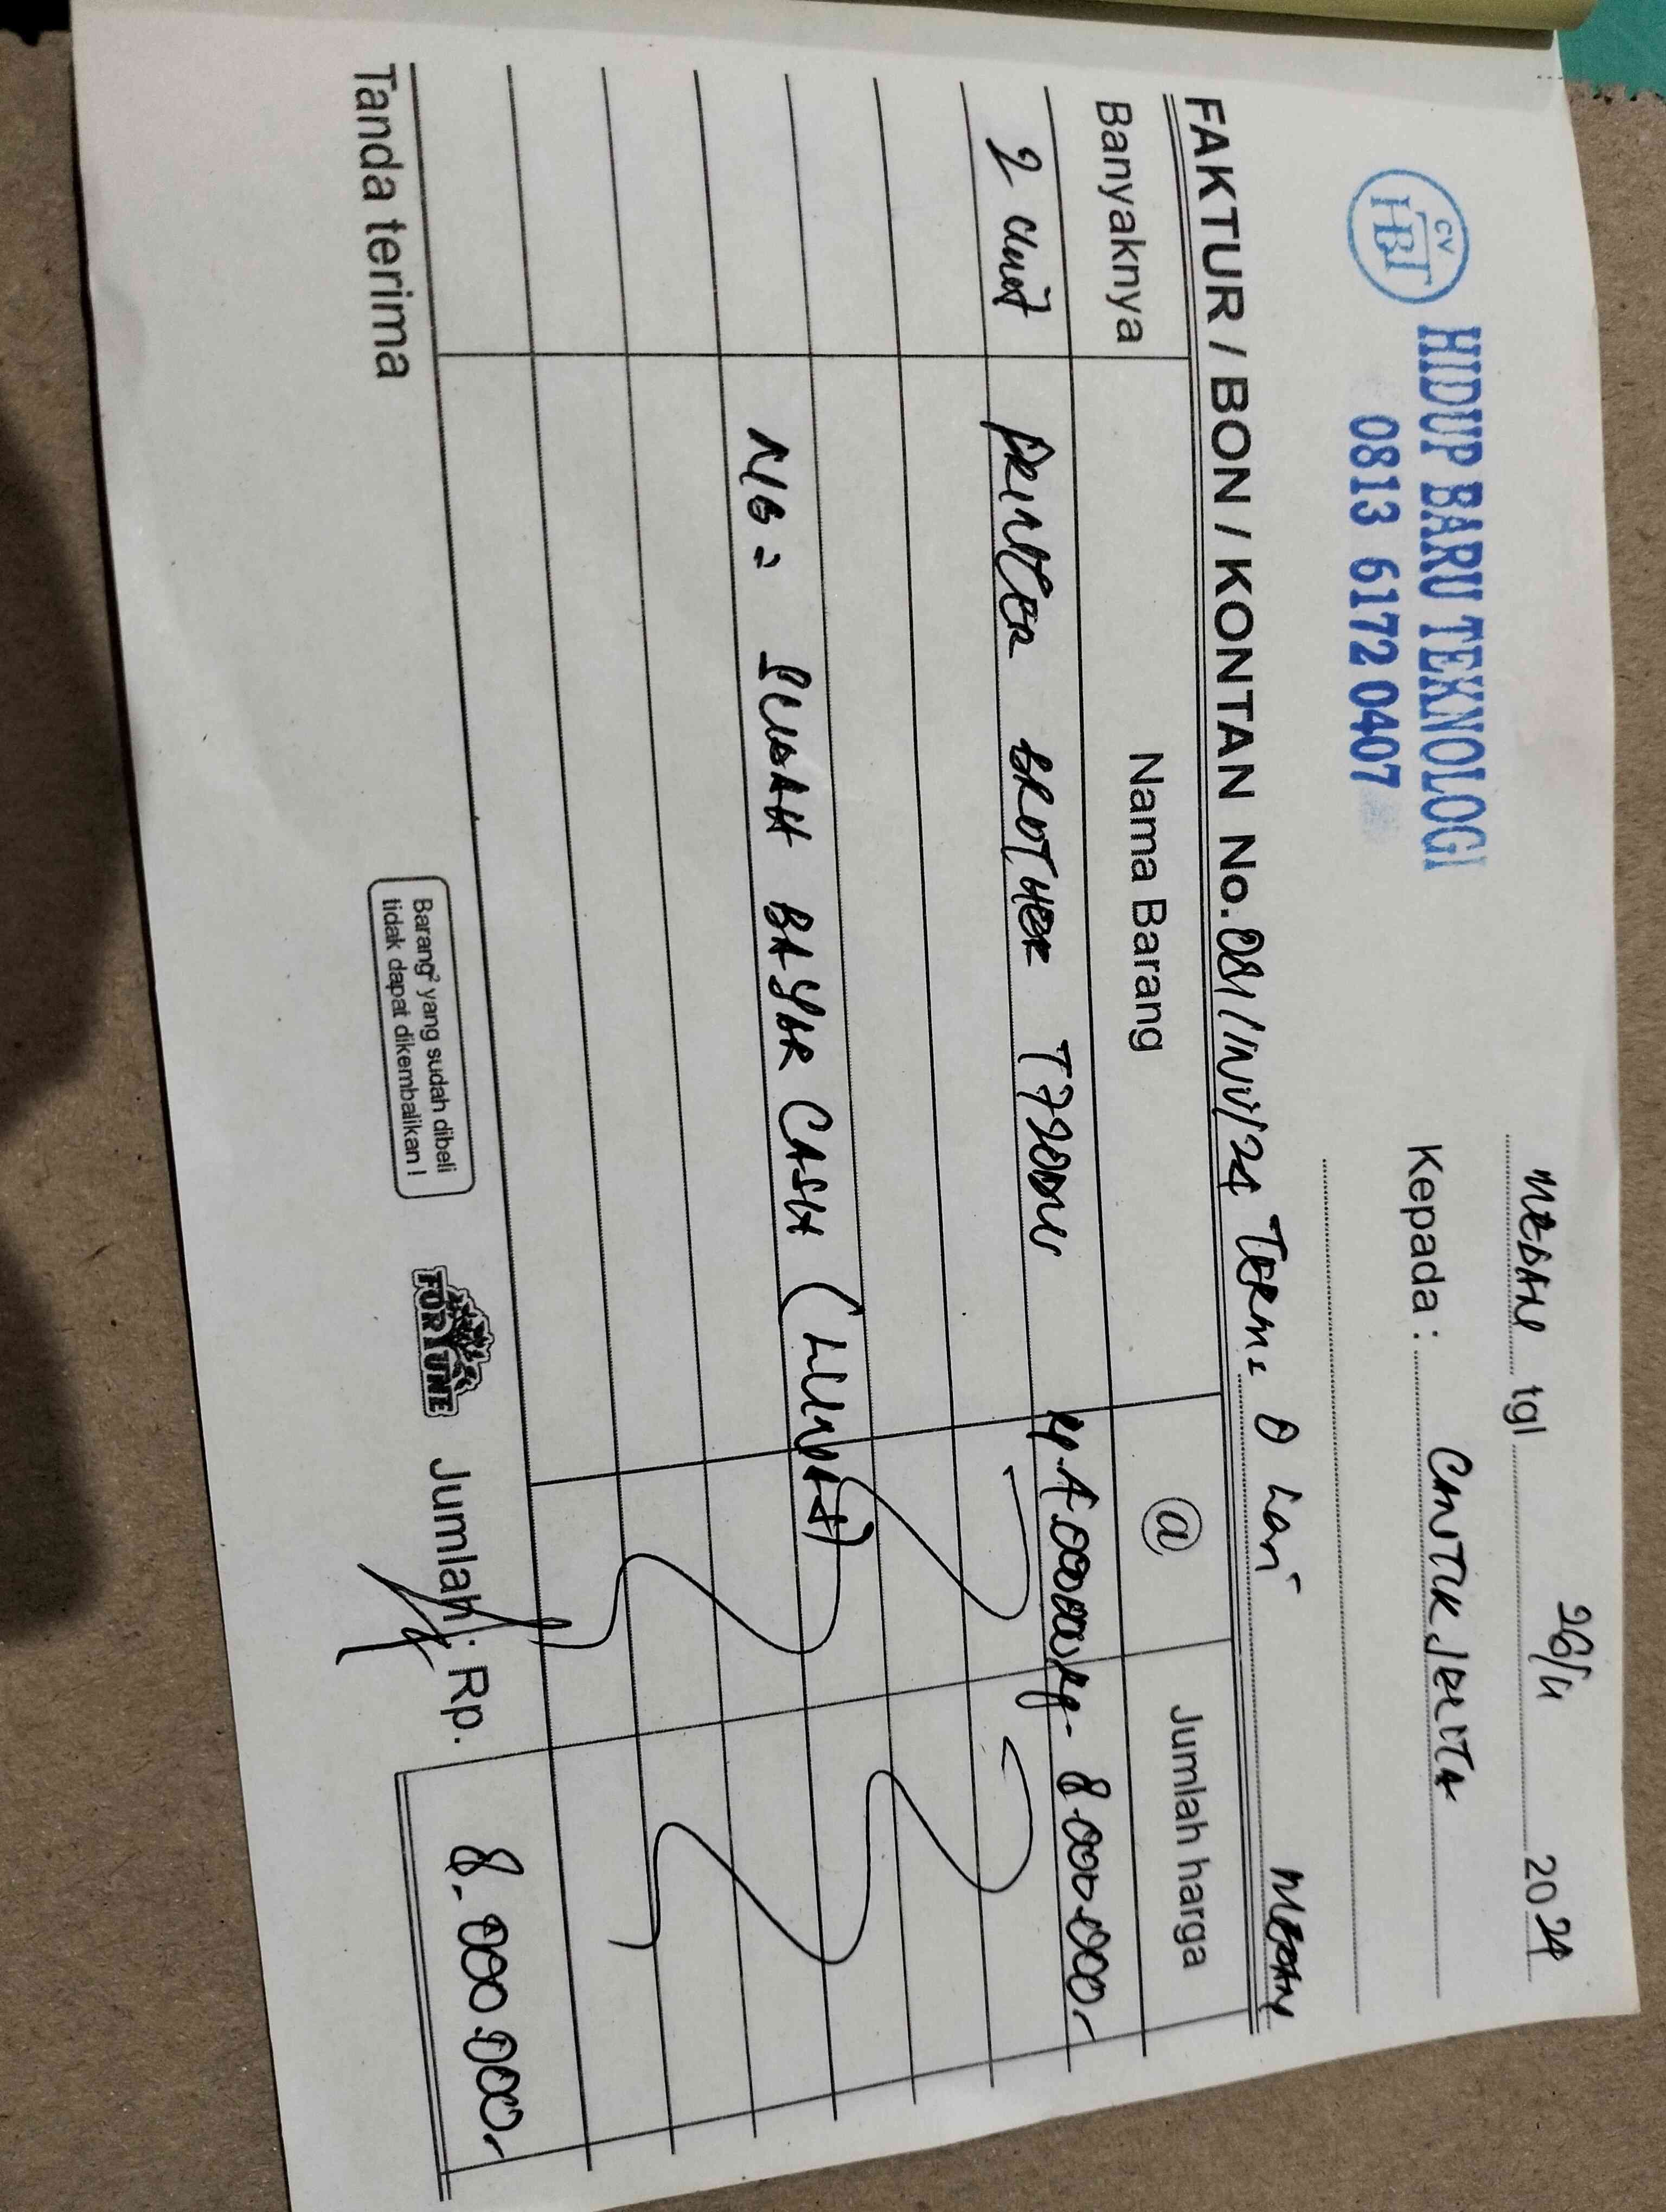 MEDAN tgl 26/11 2024
CV HBT HIDUP BARU TEKNOLOGI
0813 6172 0407
Kepada : CANTIK JELITA
MEDAN
FAKTUR / BON / KONTAN No. 081/INV/24 TERM: 0 hari
Banyaknya Nama Barang @ Jumlah harga
2 unit PRINTER BROTHER T720DW Rp. 4.000.000 Rp. 8.000.000,-
NB: SUDAH BAYAR CASH (LUNAS)
Tanda terima
Barang² yang sudah dibeli
tidak dapat dikembalikan !
FORTUNE
Jumlah : Rp. 8.000.000,-